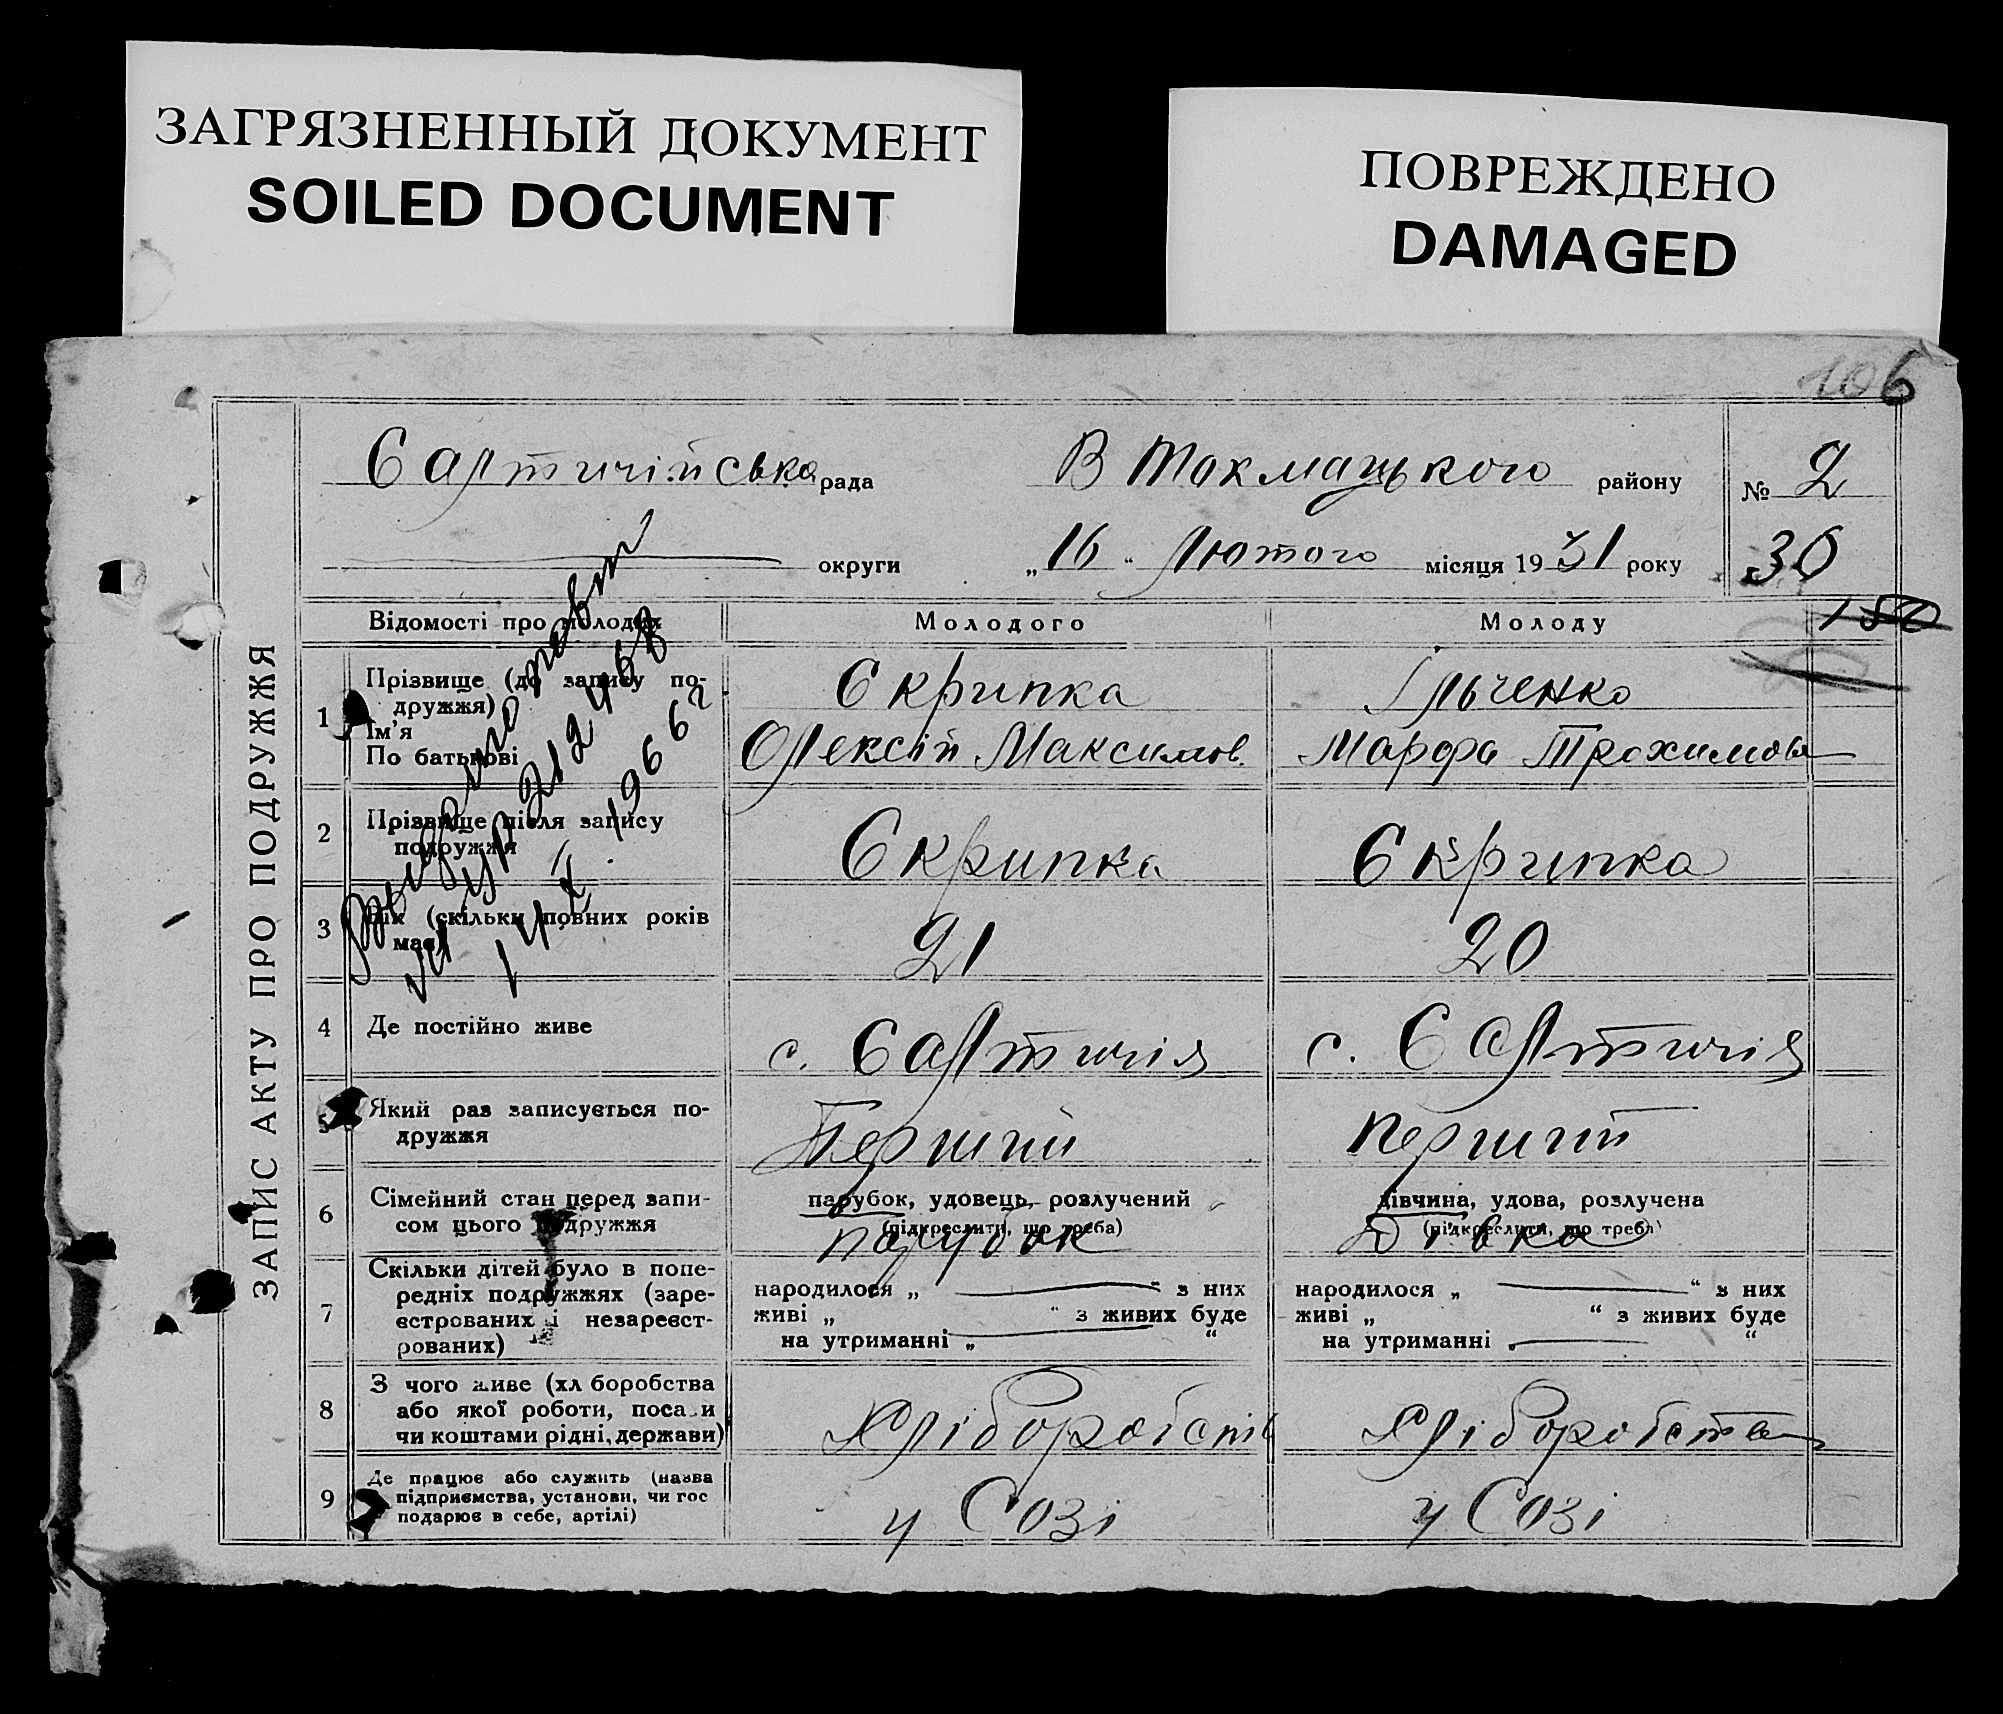 ЗАГРЯЗНЕННЫЙ ДОКУМЕНТ
SOILED DOCUMENT
ПОВРЕЖДЕНО
DAMAGED
106
ЗАПИС АКТУ ПРО ПОДРУЖЖЯ
Салтичійська рада В Токмацького району № 2
округи „16“ Лютого місяця 1931 року 30
Відомості про молодих Молодого Молоду 150
1 Прізвище (до запису по-
дружжя) Скрипка Ільченко
Ім'я
По батькові Олексій Максимов. Марфа Трохимовн
2 Прізвище після запису
подружжя Скрипка Скрипка
3 Вік (скільки повних років
має) 21 20
4 Де постійно живе с. Салтичія с. Салтичія
5 Який раз записується по-
дружжя Перший Перший
6 Сімейний стан перед запи-
сом цього подружжя
парубок, удовець, розлучений
(підкреслити, що треба)
парубок
дівчина, удова, розлучена
(підкреслити, що треба)
Дівка
7 Скільки дітей було в попе-
редніх подружжях (заре-
єстрованих і незареєст-
рованих)
народилося „ “ з них
живі „ “ з живих буде
на утриманні „ “
народилося „ “ з них
живі „ “ з живих буде
на утриманні „ “
8 З чого живе (хл боробства
або якої роботи, посади
чи коштами рідні, держави)
Хліборобств Хліборобства
9 Де працює або служить (назва
підприємства, установи, чи гос
подарює в себе, артілі)
у Созі у Созі
повт
УР 212468
14 X 1966 г.